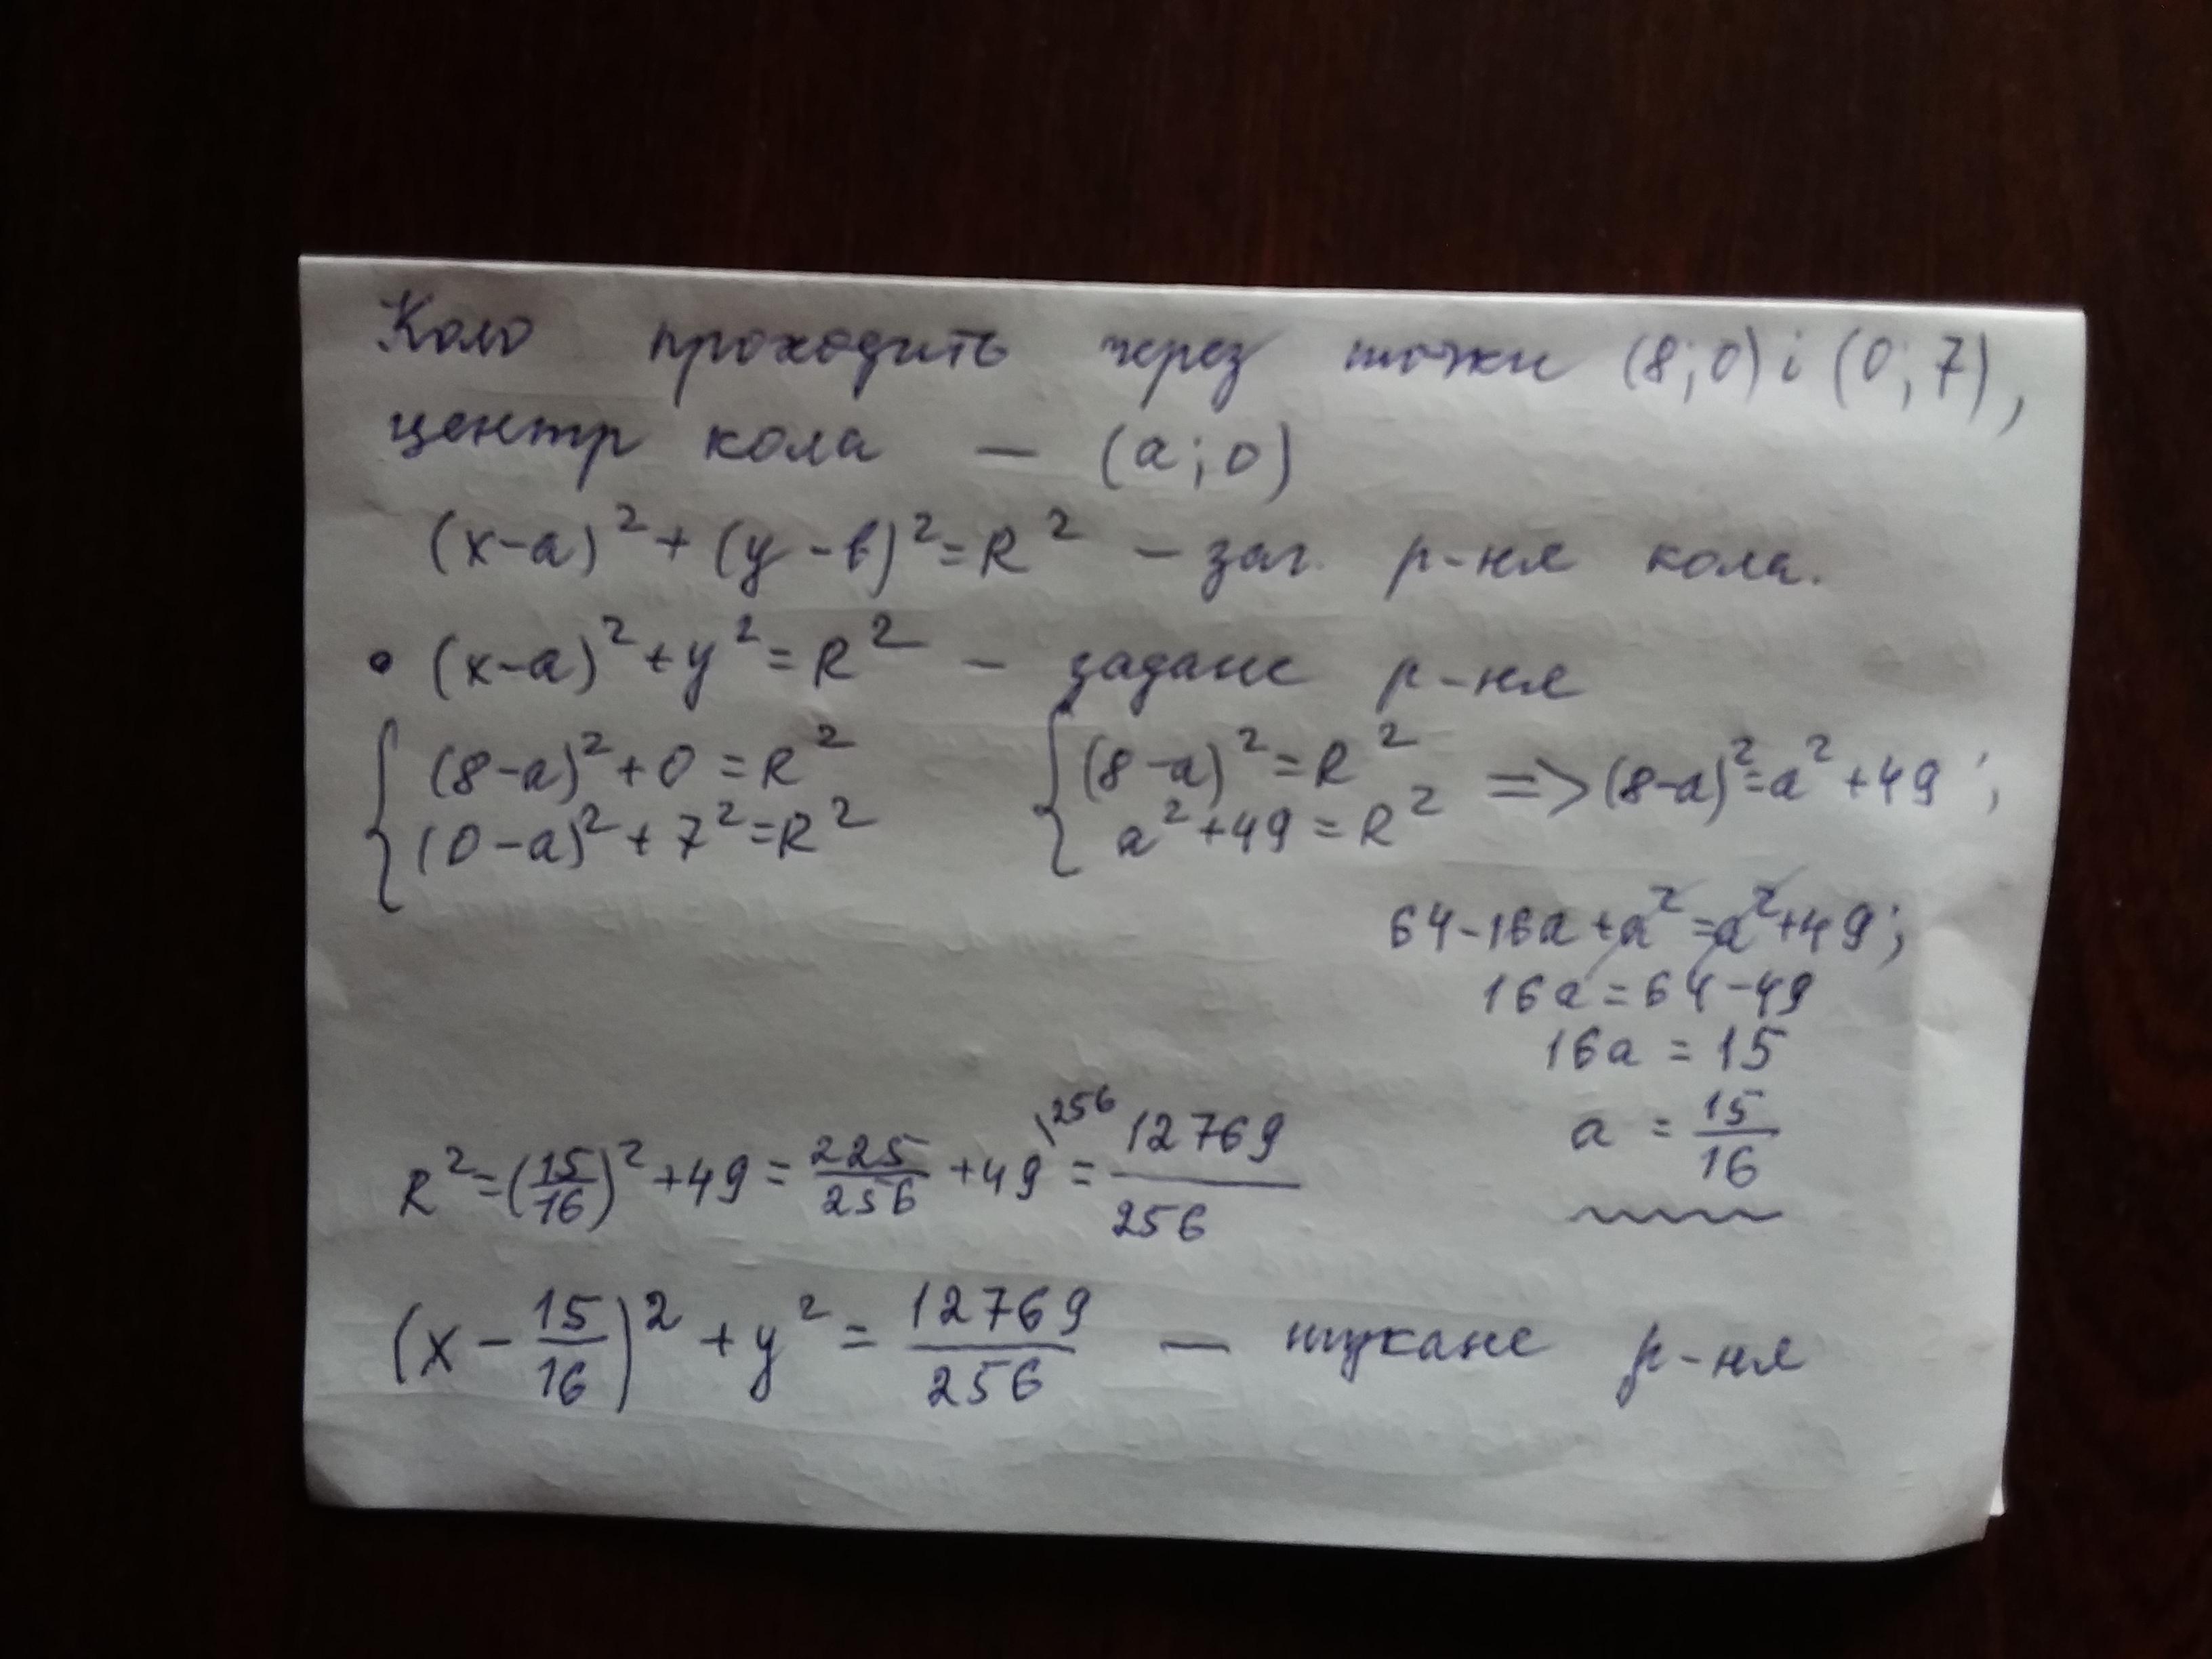 Коло проходить через точки (8;0) і (0;7),
центр кола — (a;0)
(x-a)² + (y-b)² = R² - заг. р-ня кола.
• (x-a)² + y² = R² - задане р-ня
{ (8-a)² + 0 = R² { (8-a)² = R² => (8-a)² = a² + 49;
(0-a)² + 7² = R² a² + 49 = R²
64-16a + a² = a² + 49;
16a = 64-49
16a = 15
a = 15/16
R² = (15/16)² + 49 = 225/256 + 49\²⁵⁶ = 12769/256
(x - 15/16)² + y² = 12769/256 — шукане р-ня